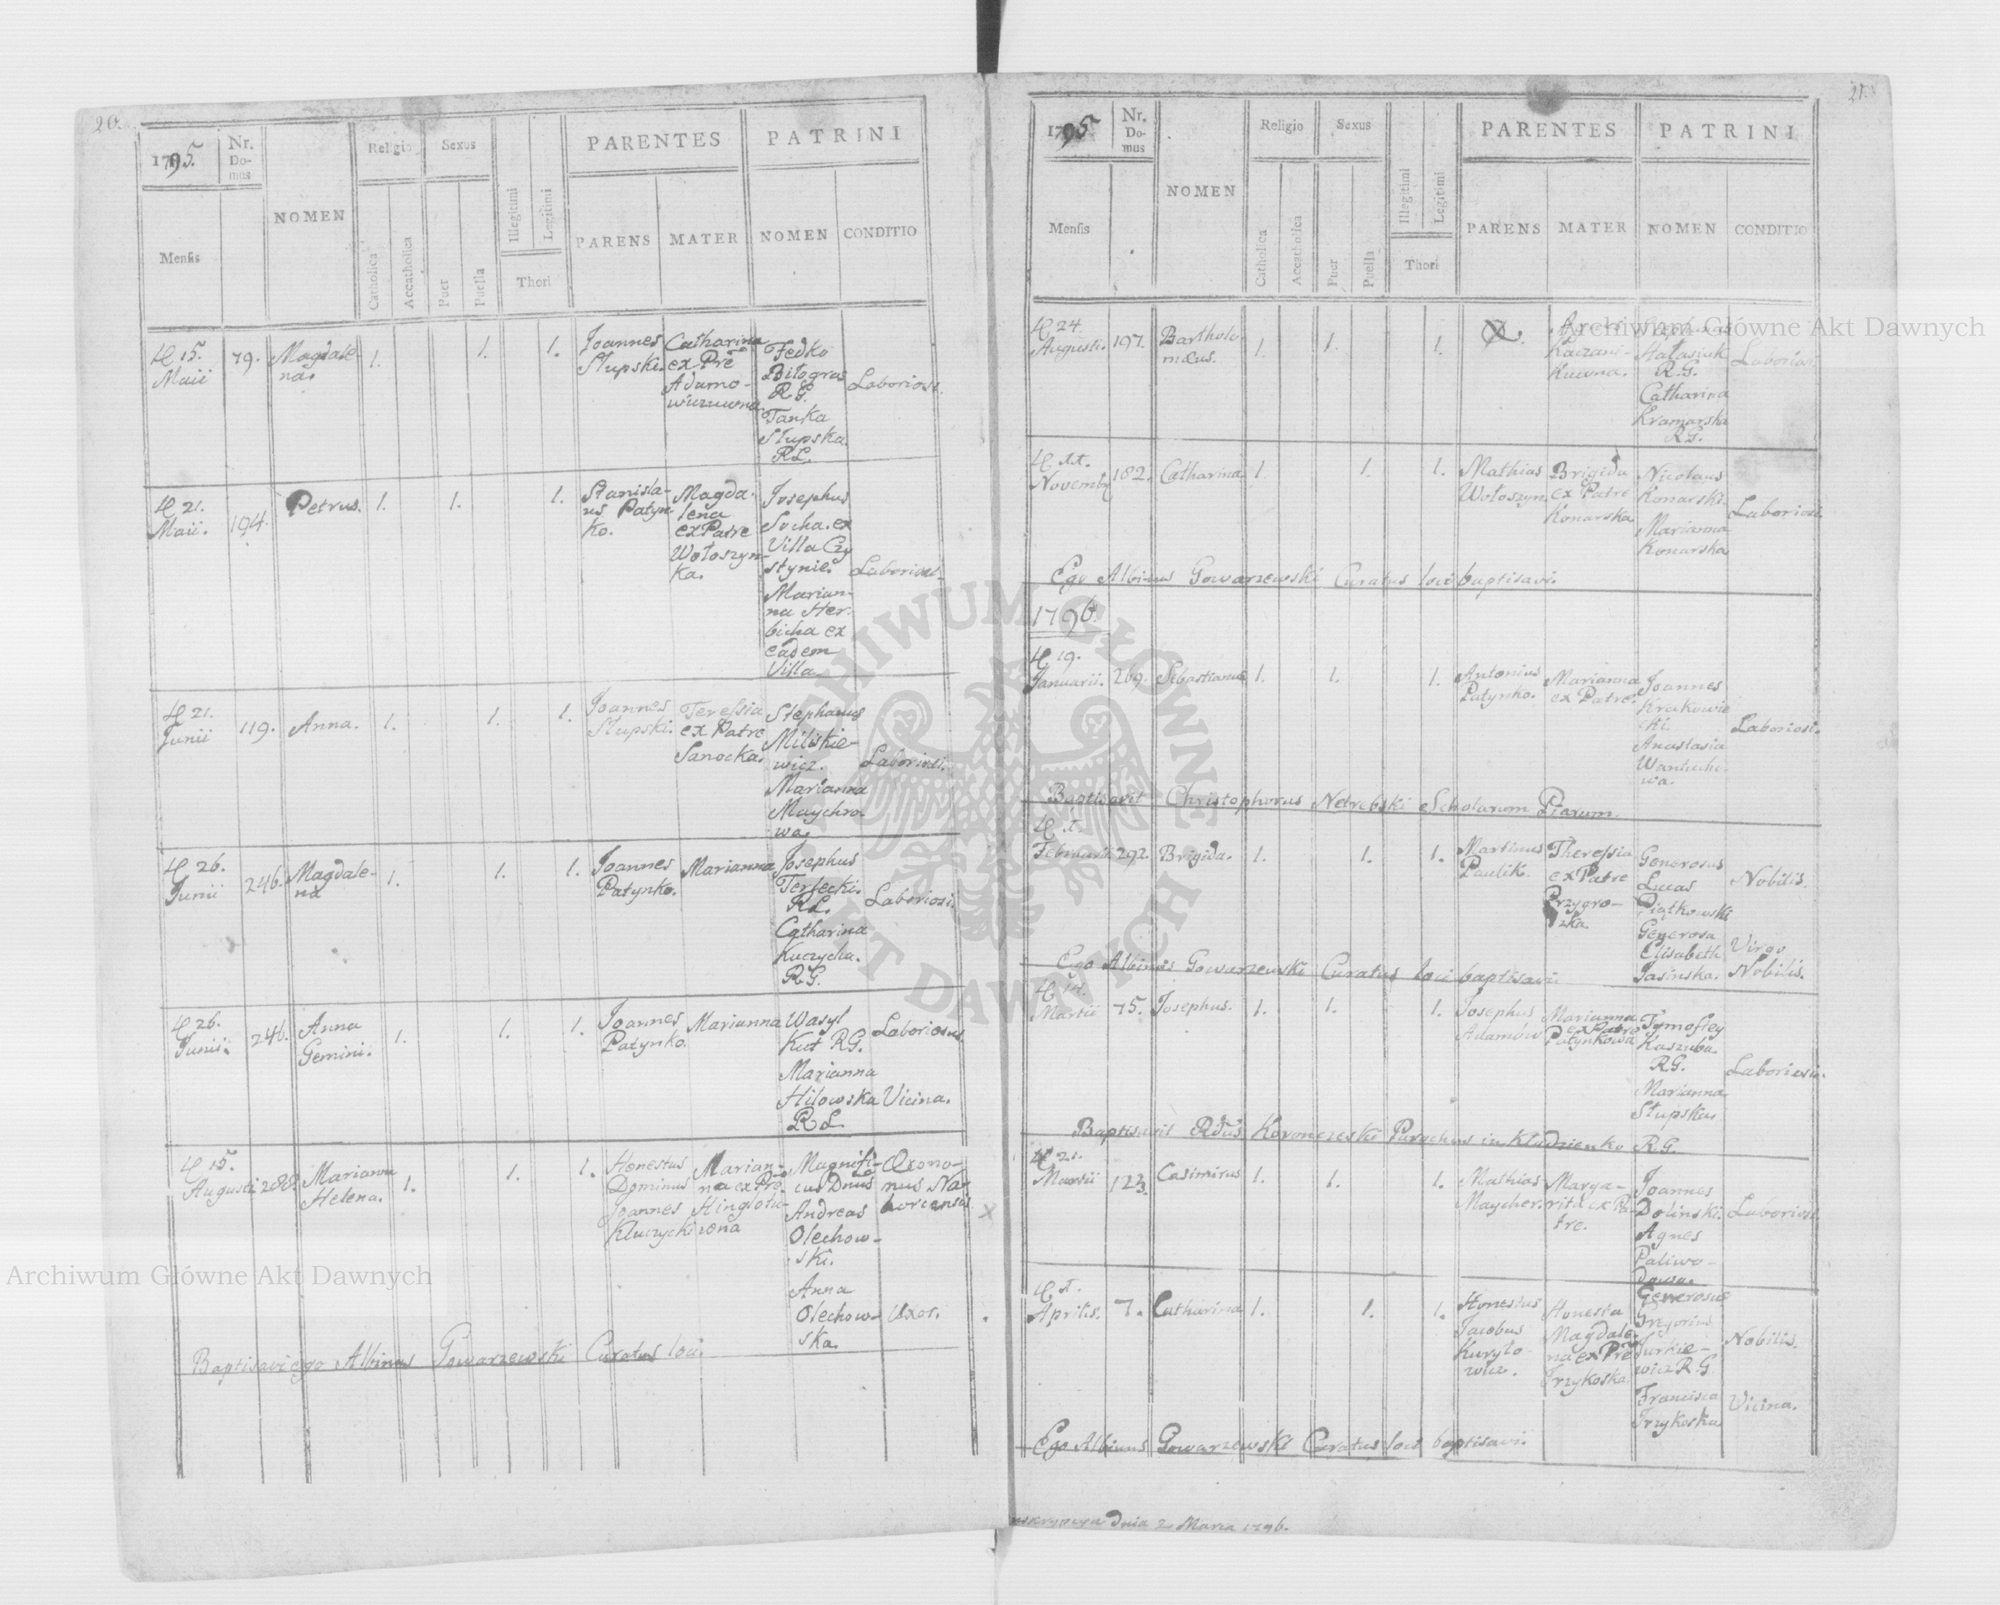 20.
1795.
Nr. Do-mus
NOMEN
Religio
Sexus
PARENTES
PATRINI
Mensis
Catholica
Accatholica
Puer
Puella
Illegitimi
Legitimi
Thori
PARENS
MATER
NOMEN
CONDITIO
15. Maii
79.
Magdale-
na.
1.
1.
1.
Joannes
Słupski.
Catharina
ex Pre
Adamo-
wiczuwna
Fedko
Białogras
R G.
Tanka
Słupska
RL.
Laboriosi.
21. Maii.
194.
Petrus.
1.
1.
1.
Stanisla-
us Patyn-
ko.
Magda-
lena
ex Patre
Wołoszyn-
ka.
Josephus
Socha. ex
Villa Czy
stynie.
Marian-
na Her-
bicha ex
eadem
Villa.
Laboriosi.
21. Junii
119.
Anna.
1.
1.
1.
Joannes
Słupski.
Teressia
ex Patre
Sanocka.
Stephanus
Miliskie-
wicz.
Marianna
Maychro-
wa.
Laboriosi.
26. Junii
246.
Magdale-
na
1.
1.
1.
Joannes
Patynko.
Marianna
Josephus
Terlecki.
RL.
Catharina
Kuczycha.
RG.
Laboriosi.
26. Junii.
246.
Anna
Gemini.
1.
1.
1.
Joannes
Patynko.
Marianna
Wasyl
Kut RG.
Marianna
Hilowska
R L
Laboriosus
Vicina.
15. Augusti
288.
Marianna
Helena.
1.
1.
1.
Honestus
Dominus
Joannes
Kluczycki
Marian-
na ex Pre
Hinglotu-
wna
Magnifi-
cus Dnus
Andreas
Olechow-
ski.
Anna
Olechow-
ska.
Uxor.
Baptisavi ego Albinus Gowarzewski Curatus loci.
21.
1795.
Nr. Do-mus
NOMEN
Religio
Sexus
PARENTES
PATRINI
Mensis
Catholica
Accatholica
Puer
Puella
Illegitimi
Legitimi
Thori
PARENS
MATER
NOMEN
CONDITIO
24. Augusti.
197.
Bartholo-
mæus.
1.
1.
1.
Kuwna.
Hałasiuk
R.G.
Catharina
Kramarska
RG.
Laboriosi
Novemb
182.
Catharina
1.
1.
1.
Mathias
Wołoszyn.
Brigida
ex Patre
Konarska
Nicolaus
Konarski.
Marianna
Konarska
Laboriosi.
Ego Albinus Gowarzewski Curatus loci baptisavi.
1796.
19. Januarii.
269.
Sebastianus
1.
1.
1.
Antonius
Patynko.
Marianna
ex Patre.
Joannes
Krakowie
cki.
Anastasia
Wantucho-
wa.
Laboriosi.
Baptisavit Christophorus Netrebski Scholarum Piarum.
Februarii
292.
Brigida.
1.
1.
1.
Martinus
Paulik.
Theressia
ex Patre
Przygro-
zka.
Generosus
Lucas
Piątkowski
Generosa
Elisabeth
Jasinska.
Nobilis.
Virgo
Nobilis.
Ego Albinus Gowarzewski Curatus loci baptisavi.
Martii
75.
Josephus.
1.
1.
1.
Josephus
Adamów
Marianna
ex Patre
Patynkowa
Tymofiey
Kaszuba.
RG.
Marianna
Słupska.
Laboriosi.
Baptisavit Rdus Koronczeski Parochus in Kłodzienko R.G.
21. Martii
123.
Casimirus
1.
1.
1.
Mathias
Maycher.
Marga-
rita ex Pa-
tre.
Joannes
Dolinski.
Agnes
Paliwo-
dowa.
Laboriosi.
Aprilis.
7.
Catharina
1.
1.
1.
Honestus
Jacobus
Kuryło-
wicz.
Honesta
Magdale-
na ex Pre
Trzykoska
Generosus
Gregorius
Jurkie-
wicz R.G
Francisca
Trzykoska
Nobilis.
Vicina.
Ego Albinus Gowarzewski Curatus loci baptisavi.
dnia 2 Marca 1796.
Archiwum Główne Akt Dawnych
Archiwum Główne Akt Dawnych
ARCHIWUM GŁÓWNE AKT DAWNYCH